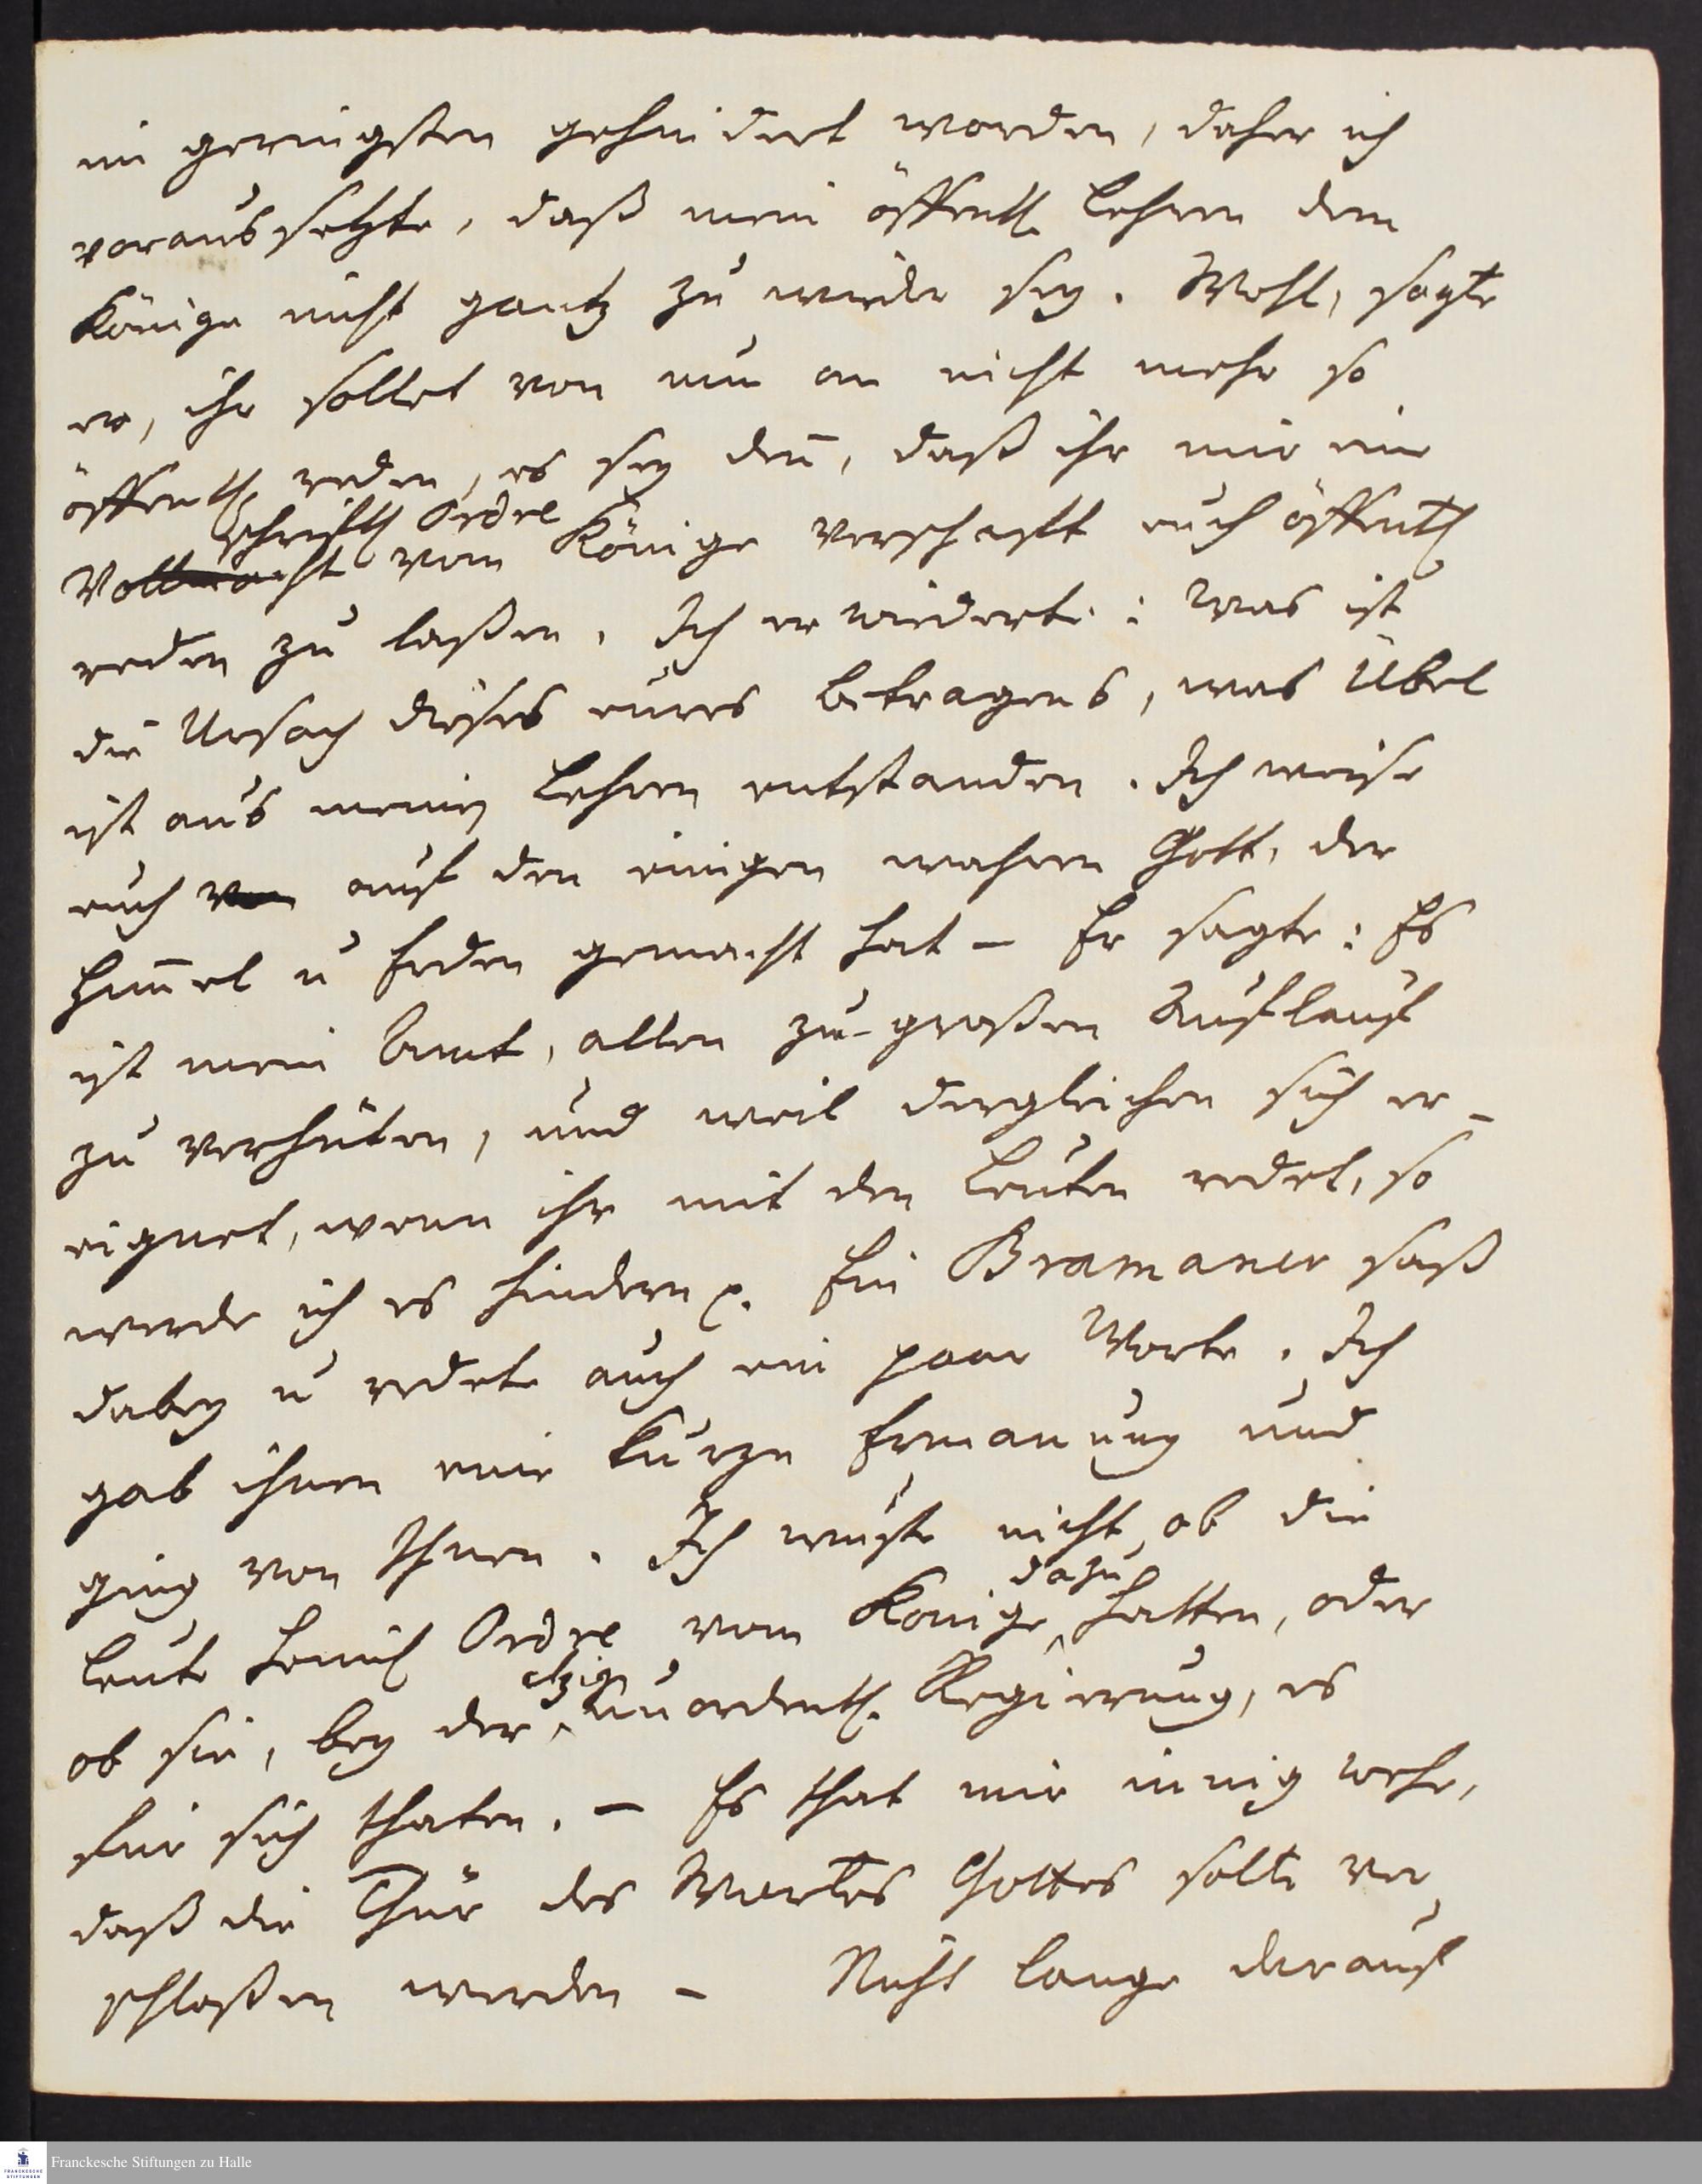 im geringsten gehindert worden, daher ich
voraussetzte, daß mein öffentl. Lehren dem
Könige nicht gantz zu wieder sey. Wohl, sagte
er, ihr sollet von nun an nicht mehr so
öffentl. reden, es sey deñ, daß ihr mir eine
schriftl. Ordre
Vollmacht vom Könige verschafft euch öffentl.
reden zu laßen. Ich erwiederte: Was ist
die Ursach dieses eures Betragens, was Übel
ist aus meinen Lehren entstanden. Ich weise
euch von auf den einigen wahren Gott, der
Him̄el u Erden gemacht hat – Er sagte: Es
ist mein Amt, allen zu großen Auflauf
zu verhüten, und weil dergleichen sich er-
eignet, wenn ihr mit den Leuten redet, so
werde ich es hindern p. Ein Bramaner saß
dabey u redete auch ein paar Worte. Ich
gab ihnen eine kurze Ermanung und
ging von Ihnen. Ich wuste nicht, ob die
dazu
Leute heiml. Ordre vom Könige hatten, oder
itzig.
ob sie, bey der unordentl. Regierung, es
für sich thaten. – Es that mir innig wehe,
daß die Thür des Wortes Gottes solte ver
schloßen werden – Nicht lange darauf
Franckesche Stiftungen zu Halle